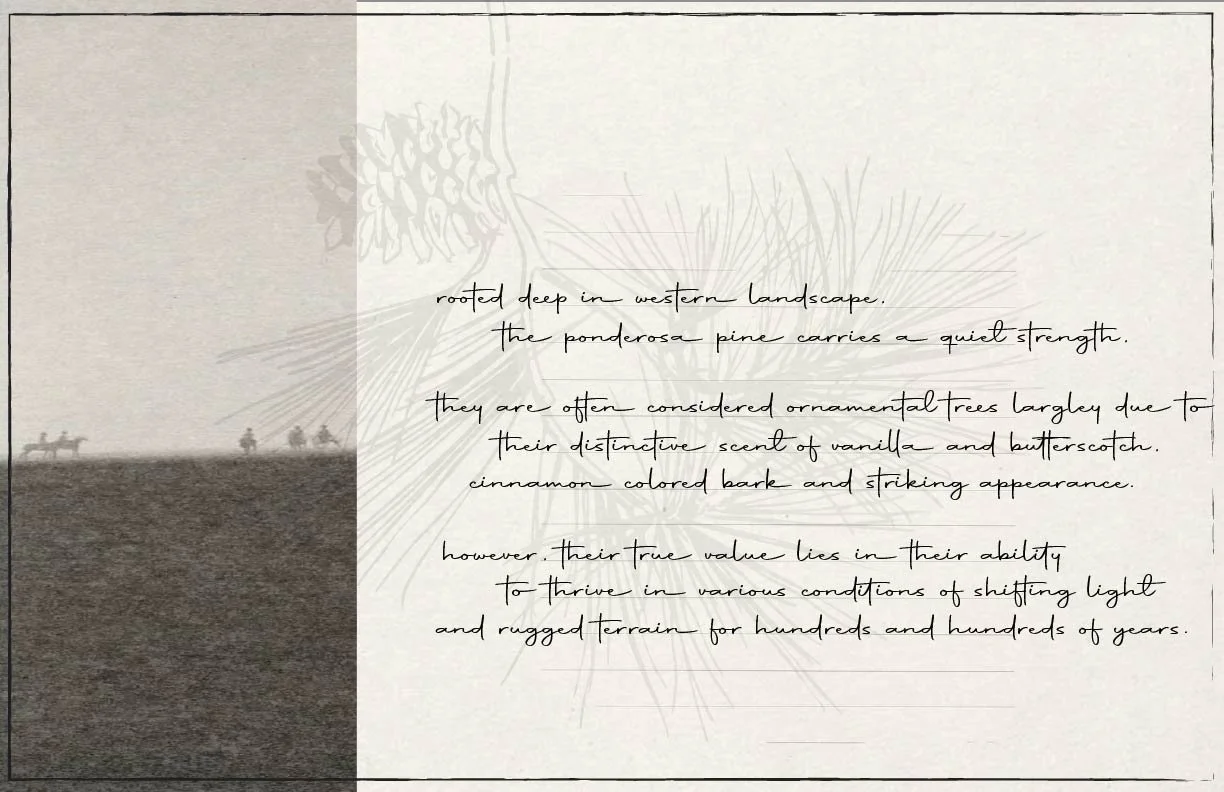 rooted deep in western landscape.
the ponderosa pine carries a quiet strength.
they are often considered ornamental trees largley due to
their distinctive scent of vanilla and butterscotch.
cinnamon colored bark and striking appearance.
however. their true value lies in their ability
to thrive in various conditions of shifting light
and rugged terrain for hundreds and hundreds of years.